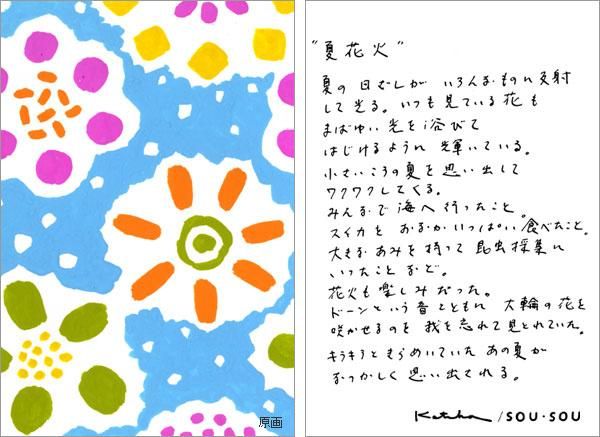 原画
“夏花火”
夏の日ざしが いろんなものに反射
して光る。いつも見ている花も
まばゆい光を浴びて
はじけるように輝いている。
小さいころの夏を思い出して
ワクワクしてくる。
みんなで海へ行ったこと。
スイカを おなかいっぱい食べたこと。
大きなあみを持って 昆虫採集に
いったこと など。
花火も楽しみだった。
ドーンという音とともに 大輪の花を
咲かせるのを 我を忘れて見とれていた。
キラキラときらめいていた あの夏が
なつかしく 思い出される。
Katsuji / SOU・SOU